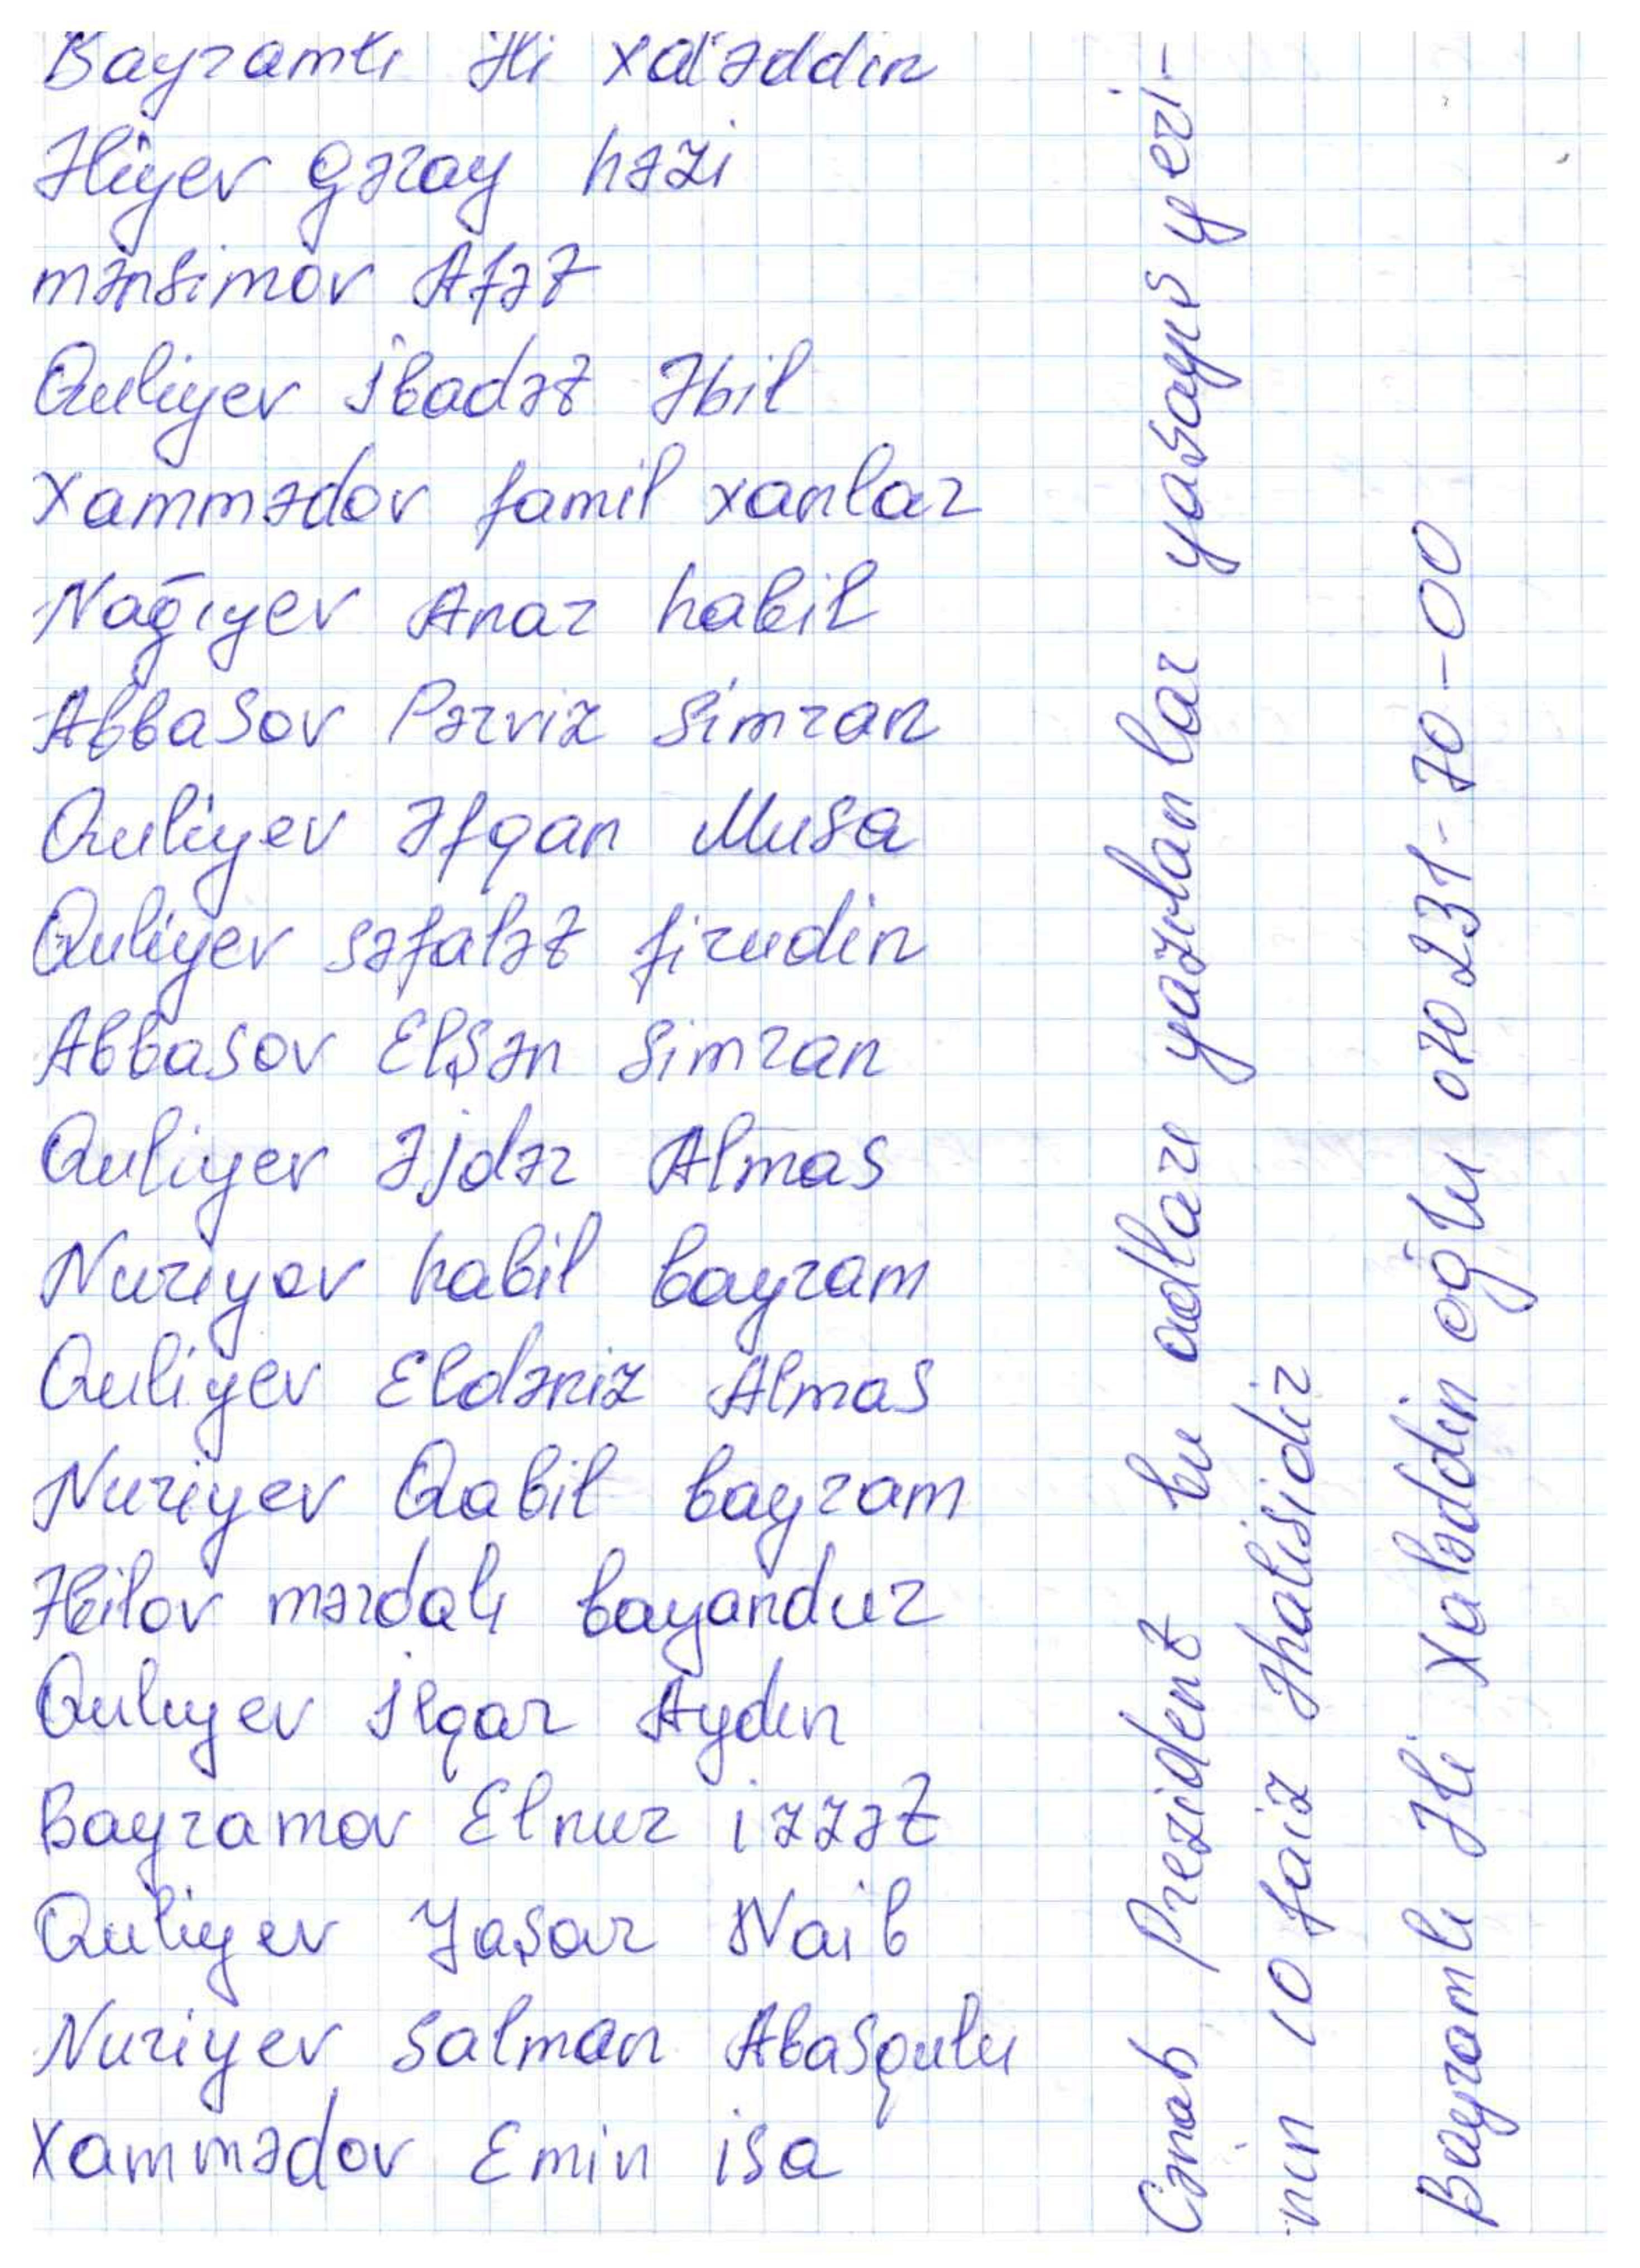 Bayramlı Əli Xaləddin
Əliyev Gəray həzi
mənsimov Afət
Quliyev İbadət Əbil
Xammədov famil xanlar
Nağıyev Anar habil
Abbasov Pərviz Simran
Quliyev Əfqan Musa
Quliyev səfalət firudin
Abbasov Elşən Simran
Quliyev Əjdər Almas
Nuriyev habil bayram
Quliyev Eldəniz Almas
Nuriyev Qabil bayram
Əbilov mərdalı bayandur
Quliyev İlqar Aydın
Bayramov Elnur izzət
Quliyev Yaşar Naib
Nuriyev Salman Abasqulu
Xammədov Emin isa
Cənab Prezident bu adları yazılanlar yasayıs yeri-
nin 10 faiz Əhalisidir
Bayramlı Əli Xaləddin oğlu 070 231-70-00